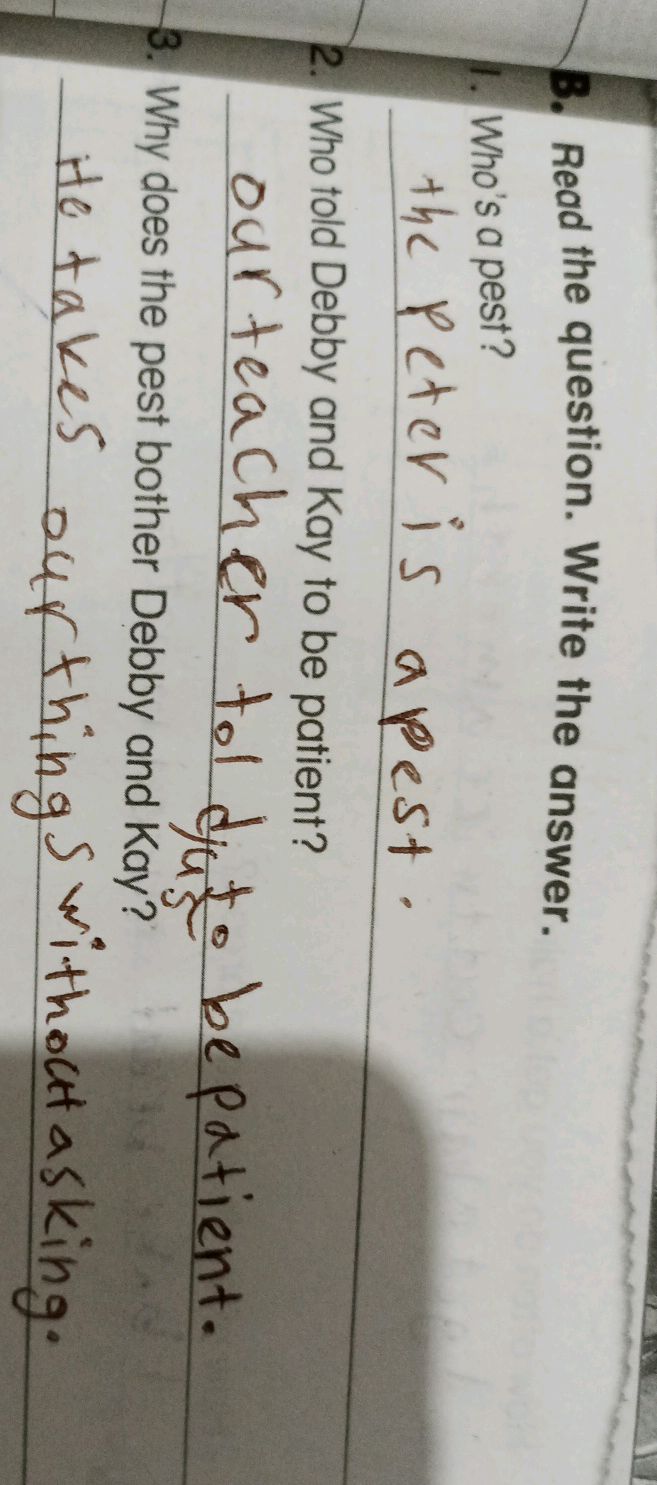 B. Read the question. Write the answer.
1. Who's a pest?
the peter is a pest.
2. Who told Debby and Kay to be patient?
our teacher told us to be patient.
3. Why does the pest bother Debby and Kay?
He takes our things without asking.